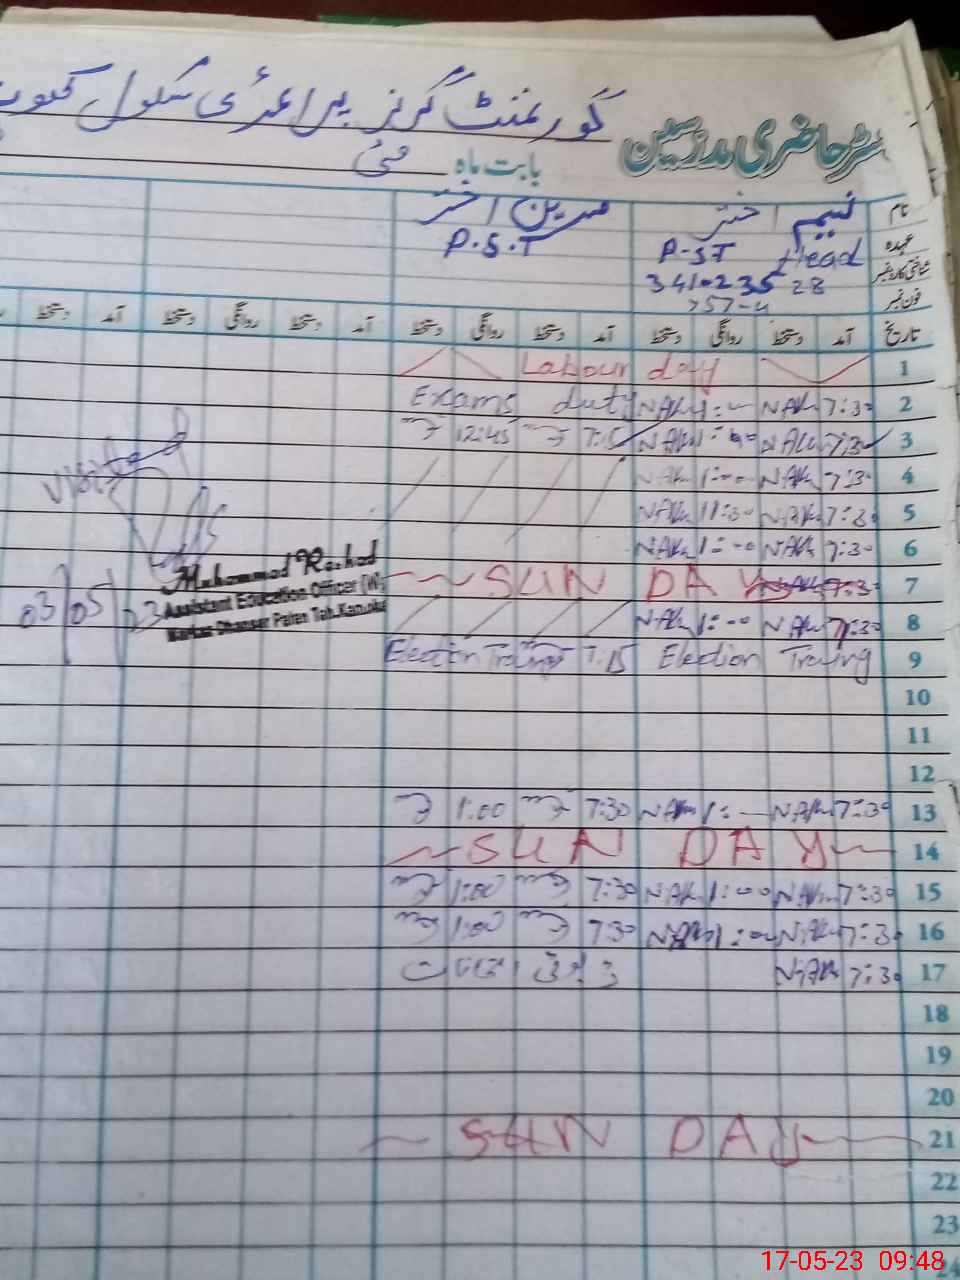 رجسٹر حاضری مدرسین گورنمنٹ گرلز پرائمری سکول
بابت ماہ مئی
نام نسیم اختر نسرین اختر
عہدہ Head P-ST P.S.T
شناختی کارڈ نمبر
فون نمبر
تاریخ آمد دستخط روانگی دستخط آمد دستخط روانگی دستخط آمد دستخط روانگی دستخط آمد دستخط
1 Labour day
2 7:30 NAK NAK Exams duty
3 7:30 NAK NAK 7:15 12:45
4 7:30 NAK 1:00 NAK
5 7:30 NAK 11:30 NAK
6 7:30 NAK 1:00 NAK
7 SUN DAY
8 7:30 NAK 1:00 NAK
9 Election Traning 7:15 Election Traning
10
11
12
13 7:30 NAK 1: NAK 7:30 1:00
14 SUN DAY
15 7:30 NAK 1:00 NAK 7:30 1:00
16 7:30 NAK 1:00 NAK 7:30 1:00
17 7:30 NAK
18
19
20
21 SUN DAY
22
23
24
Visited
Muhammad Rashad
Assistant Education Officer (W)
Markaz Dhanser Paien Teh.Kamoke
03/05/23
17-05-23 09:48